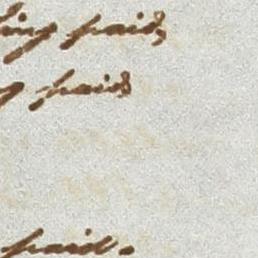 ing paid,
g paid
paid.